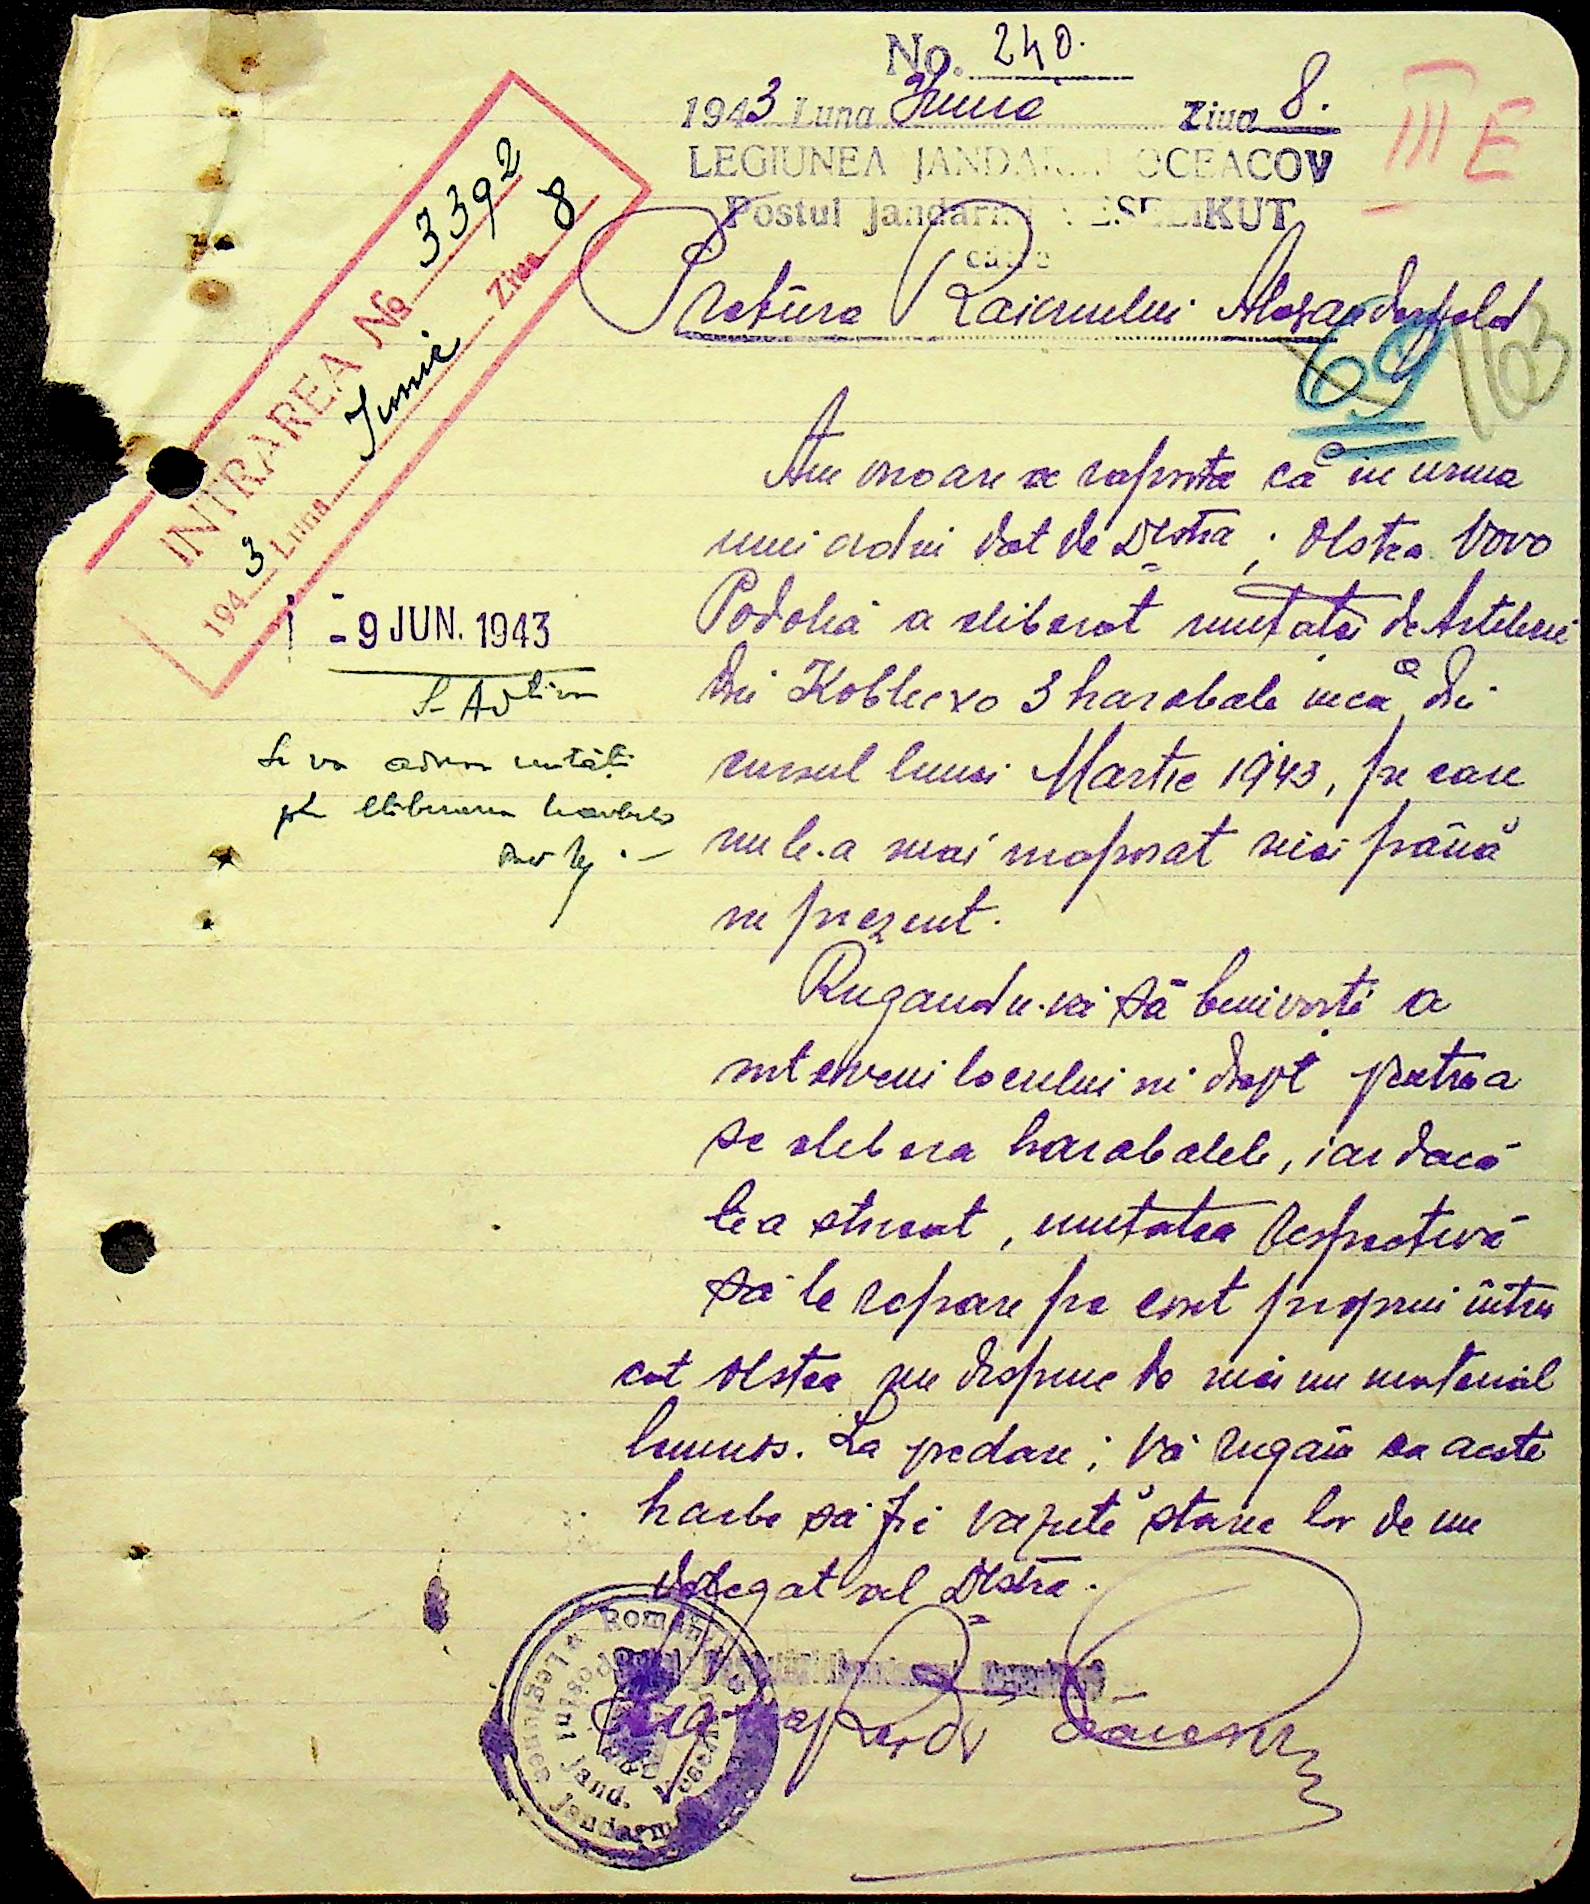 No. 240.
1943 Luna Iunie Ziua 8.
LEGIUNEA JANDARMI OCEACOV
Postul Jandarmi VESELIKUT
către
Pretura Raionului Alexanderfeld
III E
69
163
INTRAREA No 3392
1943 Luna Iunie Ziua 8
- 9 JUN. 1943
Se va adresa unității
ptr eliberarea
Am onoare a raporta că în urma
unui ordin dat de Dvstră; Olstea Novo
Podolia a eliberat unitatei de Artilerie
din Koblevo 3 harabale încă din
cursul lunei Martie 1943, pe care
nu le-a mai inapoiat nici până
în prezent.
Rugandu-vă să binevoiți a
interveni locului in drept pentru a
se elibera harabalele, iar dacă
le a stricat, unitatea respectivă
să le repare pe cont propriu întru
cat Olstea nu dispune de nici un material
lemnos. La predare; vă rugăm ca aceste
harbe să fie vazute starea lor de un
delegat al Dvstră.
România
Legiunea Jandarmi
Postul Jand.